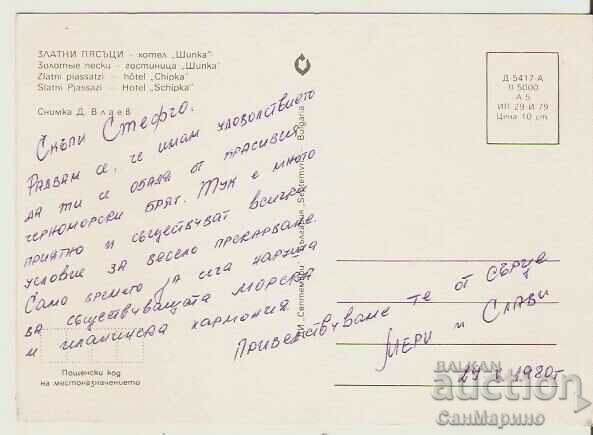 ЗЛАТНИ ПЯСЪЦИ – хотел „Шипка“
Золотые пески – гостиница „Шипка“
Zlatni piassatzi – hôtel „Chipka“
Slatni Pjassazi – Hotel „Schipka“
Снимка Д. Влаев
Д 5417-А
II 5000
А 5
ИП 29 И 79
Цена 10 ст.
Скъпи Стефчо.
Радвам се, че имам удоволствието
да ти се обадя от красивия
черноморски бряг. Тук е много
приятно и съществуват всички
условия за весело прекарване.
Само времето за сега наруша
за съществуващата морска
и планинска хармония.
Приветствуваме те от сърце
Мери и Слави
1980 г
Пощенски код
на местоназначението
ДИ „Септември“ България „Septemvri“ Bulgaria
BALKAN
auction
СанМарино